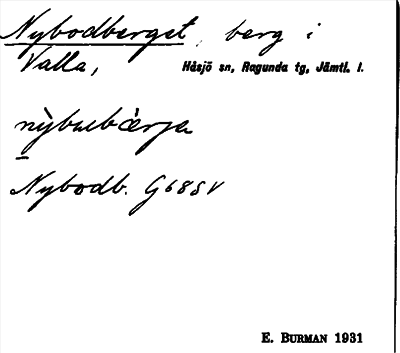 Nybodberget, berg i
Valla, Håsjö sn, Ragunda tg, Jämtl. l.
nỳbuebὰrje
Nybodb. G68SV
E. BURMAN 1931